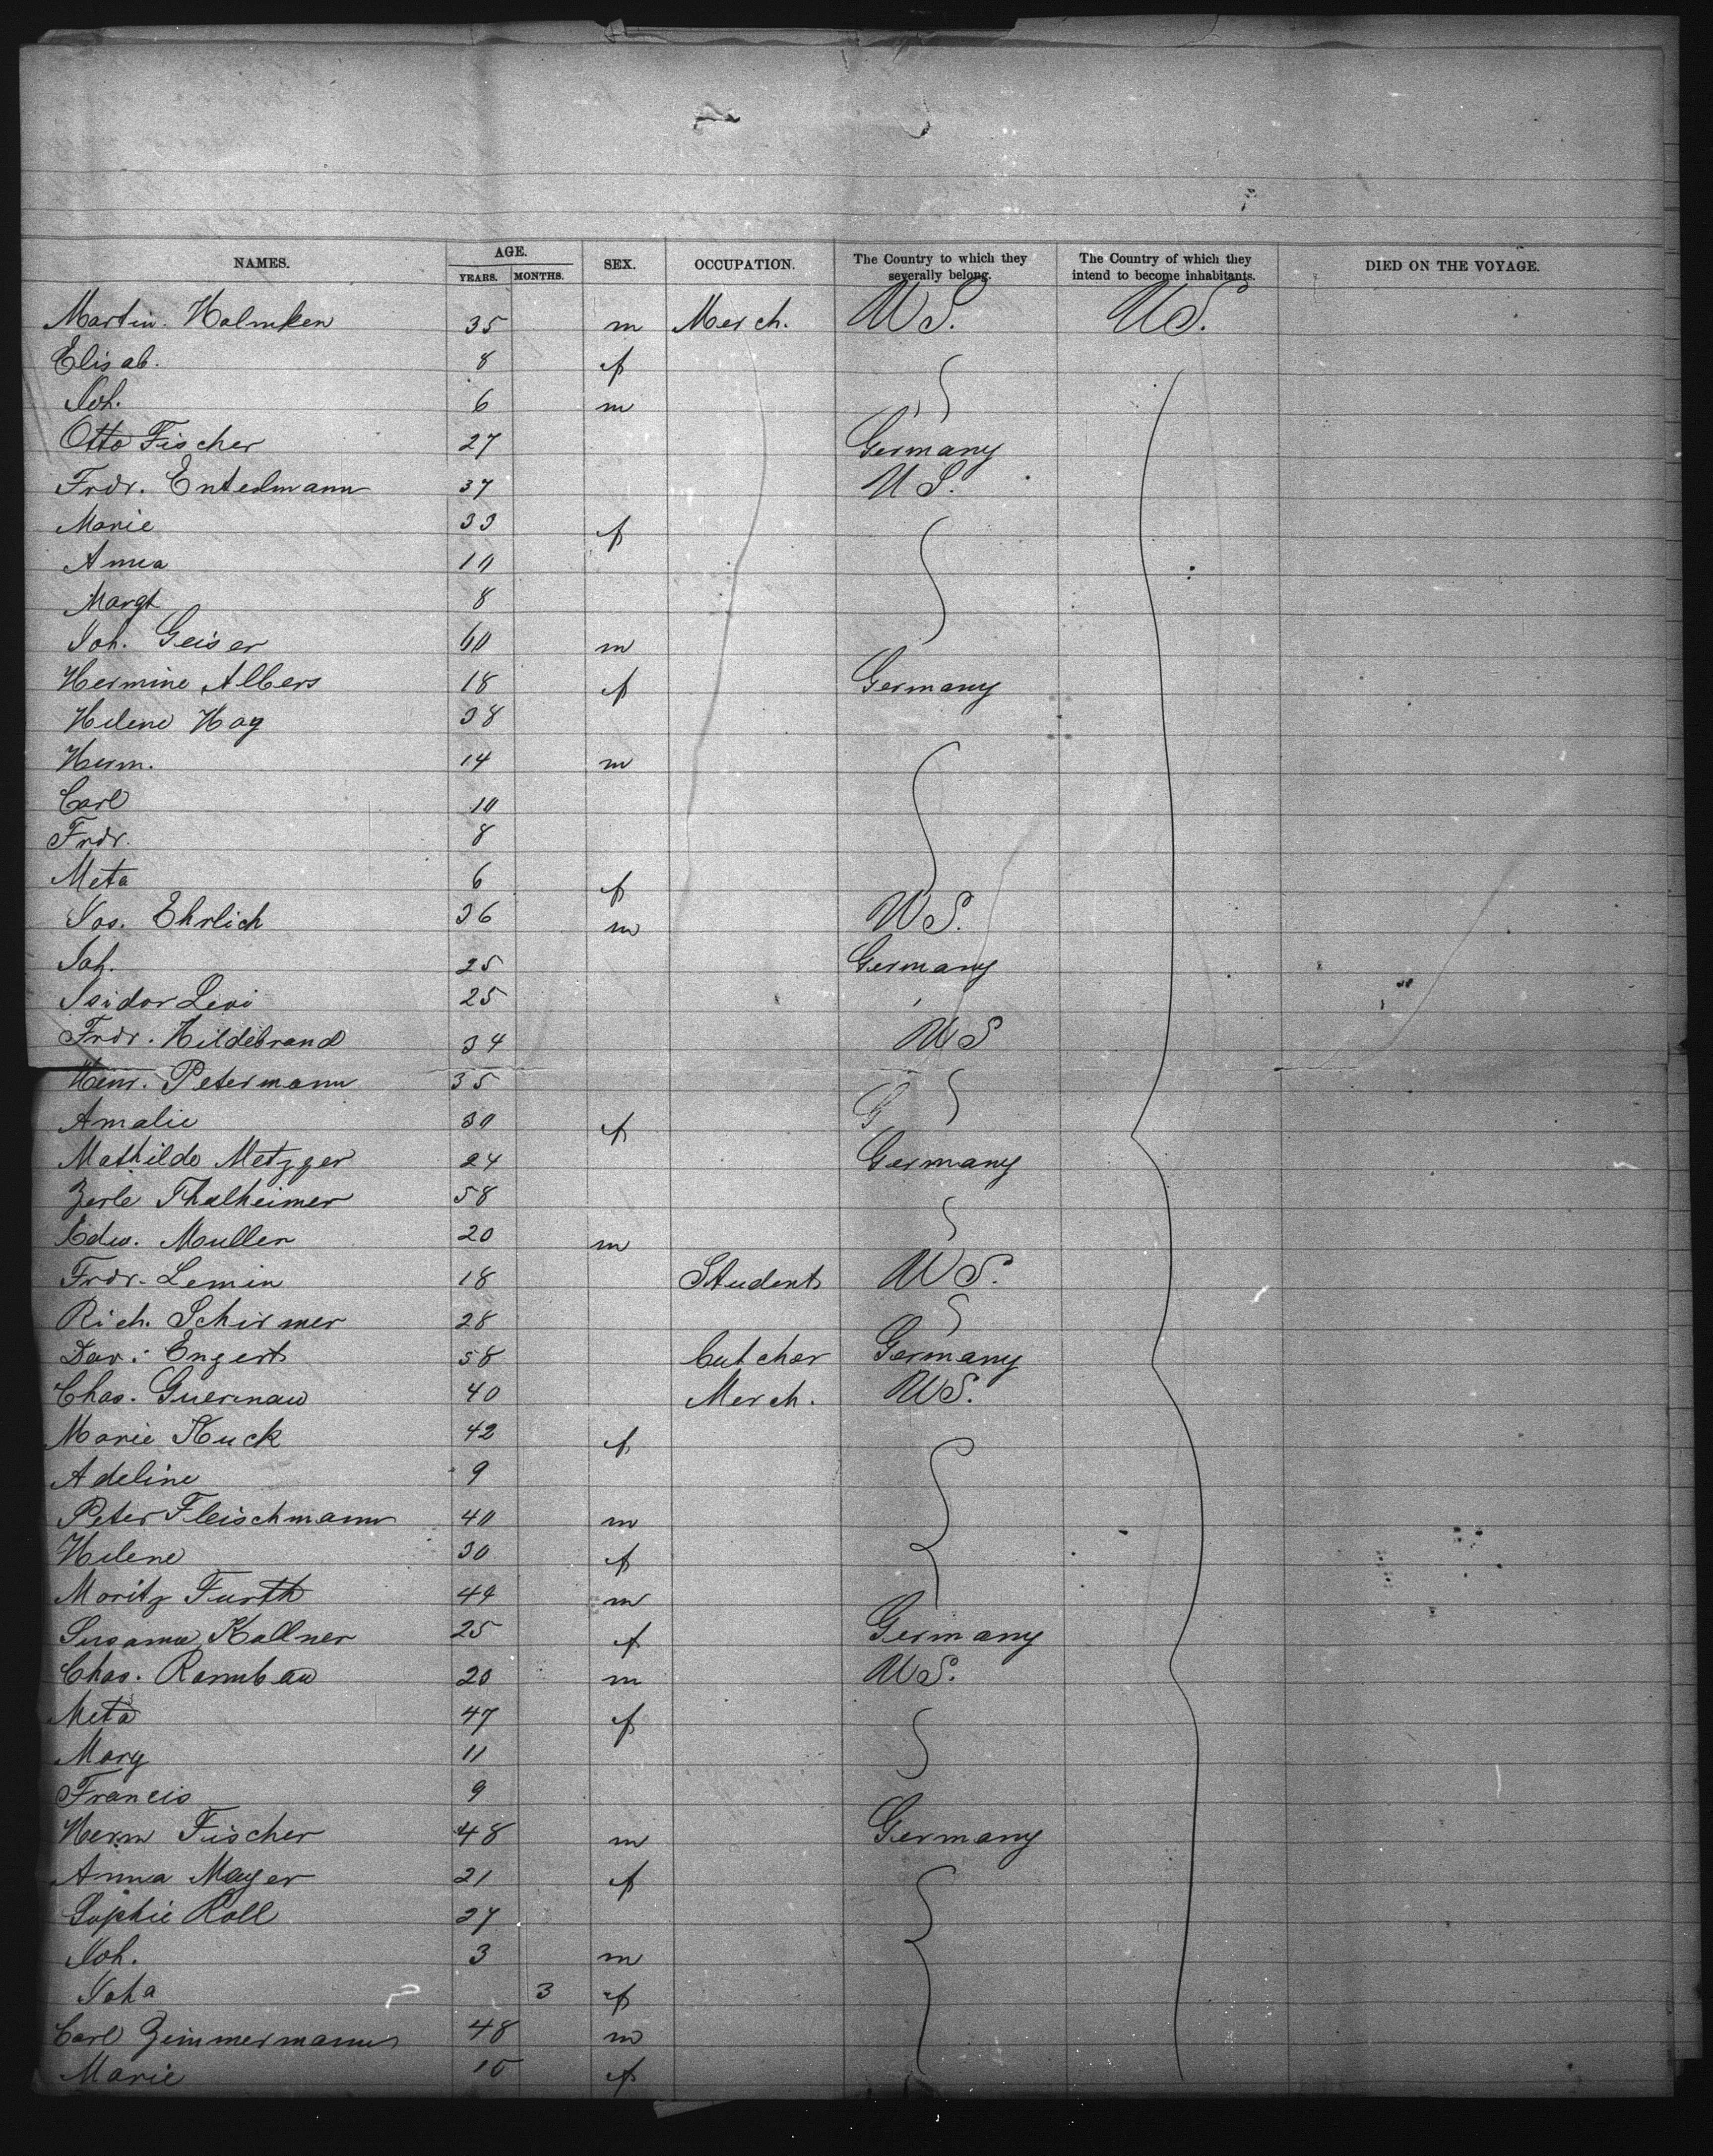 NAMES. AGE. YEARS. MONTHS. SEX. OCCUPATION. The Country to which they severally belong. The Country of which they intend to become inhabitants. DIED ON THE VOYAGE.
Martin Holmken 35 m Merch. US. US.
Elisab. 8 f
Joh. 6 m
Otto Fischer 27 Germany
Frdr. Entelmann 37 U S.
Marie 33 f
Anna 10
Margt 8
Joh. Geiser 60 m
Hermine Albers 18 f Germany
Helene Hag 38
Herm. 14 m
Carl 10
Frdr. 8
Meta 6 f
Jos. Ehrlich 36 m US.
Joh. 25 Germany
Isidor Levi 25
Frdr. Hildebrand 34 US
Heinr. Petermann 35
Amalie 30 f G
Mathilde Metzger 24 Germany
Zerle Thalheimer 58
Edw. Muller 20 m
Frdr. Lemin 18 Student US.
Rich. Schirmer 28
Dav: Engert 58 butcher Germany
Chas. Guernau 40 Merch. US.
Marie Kuck 42 f
Adeline 9
Peter Fleischmann 40 m
Helene 30 f
Moritz Furth 44 m
Susanna Kallner 25 f Germany
Chas. Rambau 20 m US.
Meta 47 f
Mary 11
Francis 9
Herm Fischer 48 m Germany
Anna Mayer 21 f
Sophie Roll 27
Joh. 3 m
Joha 3 f
Carl Zimmermann 48 m
Marie 10 f